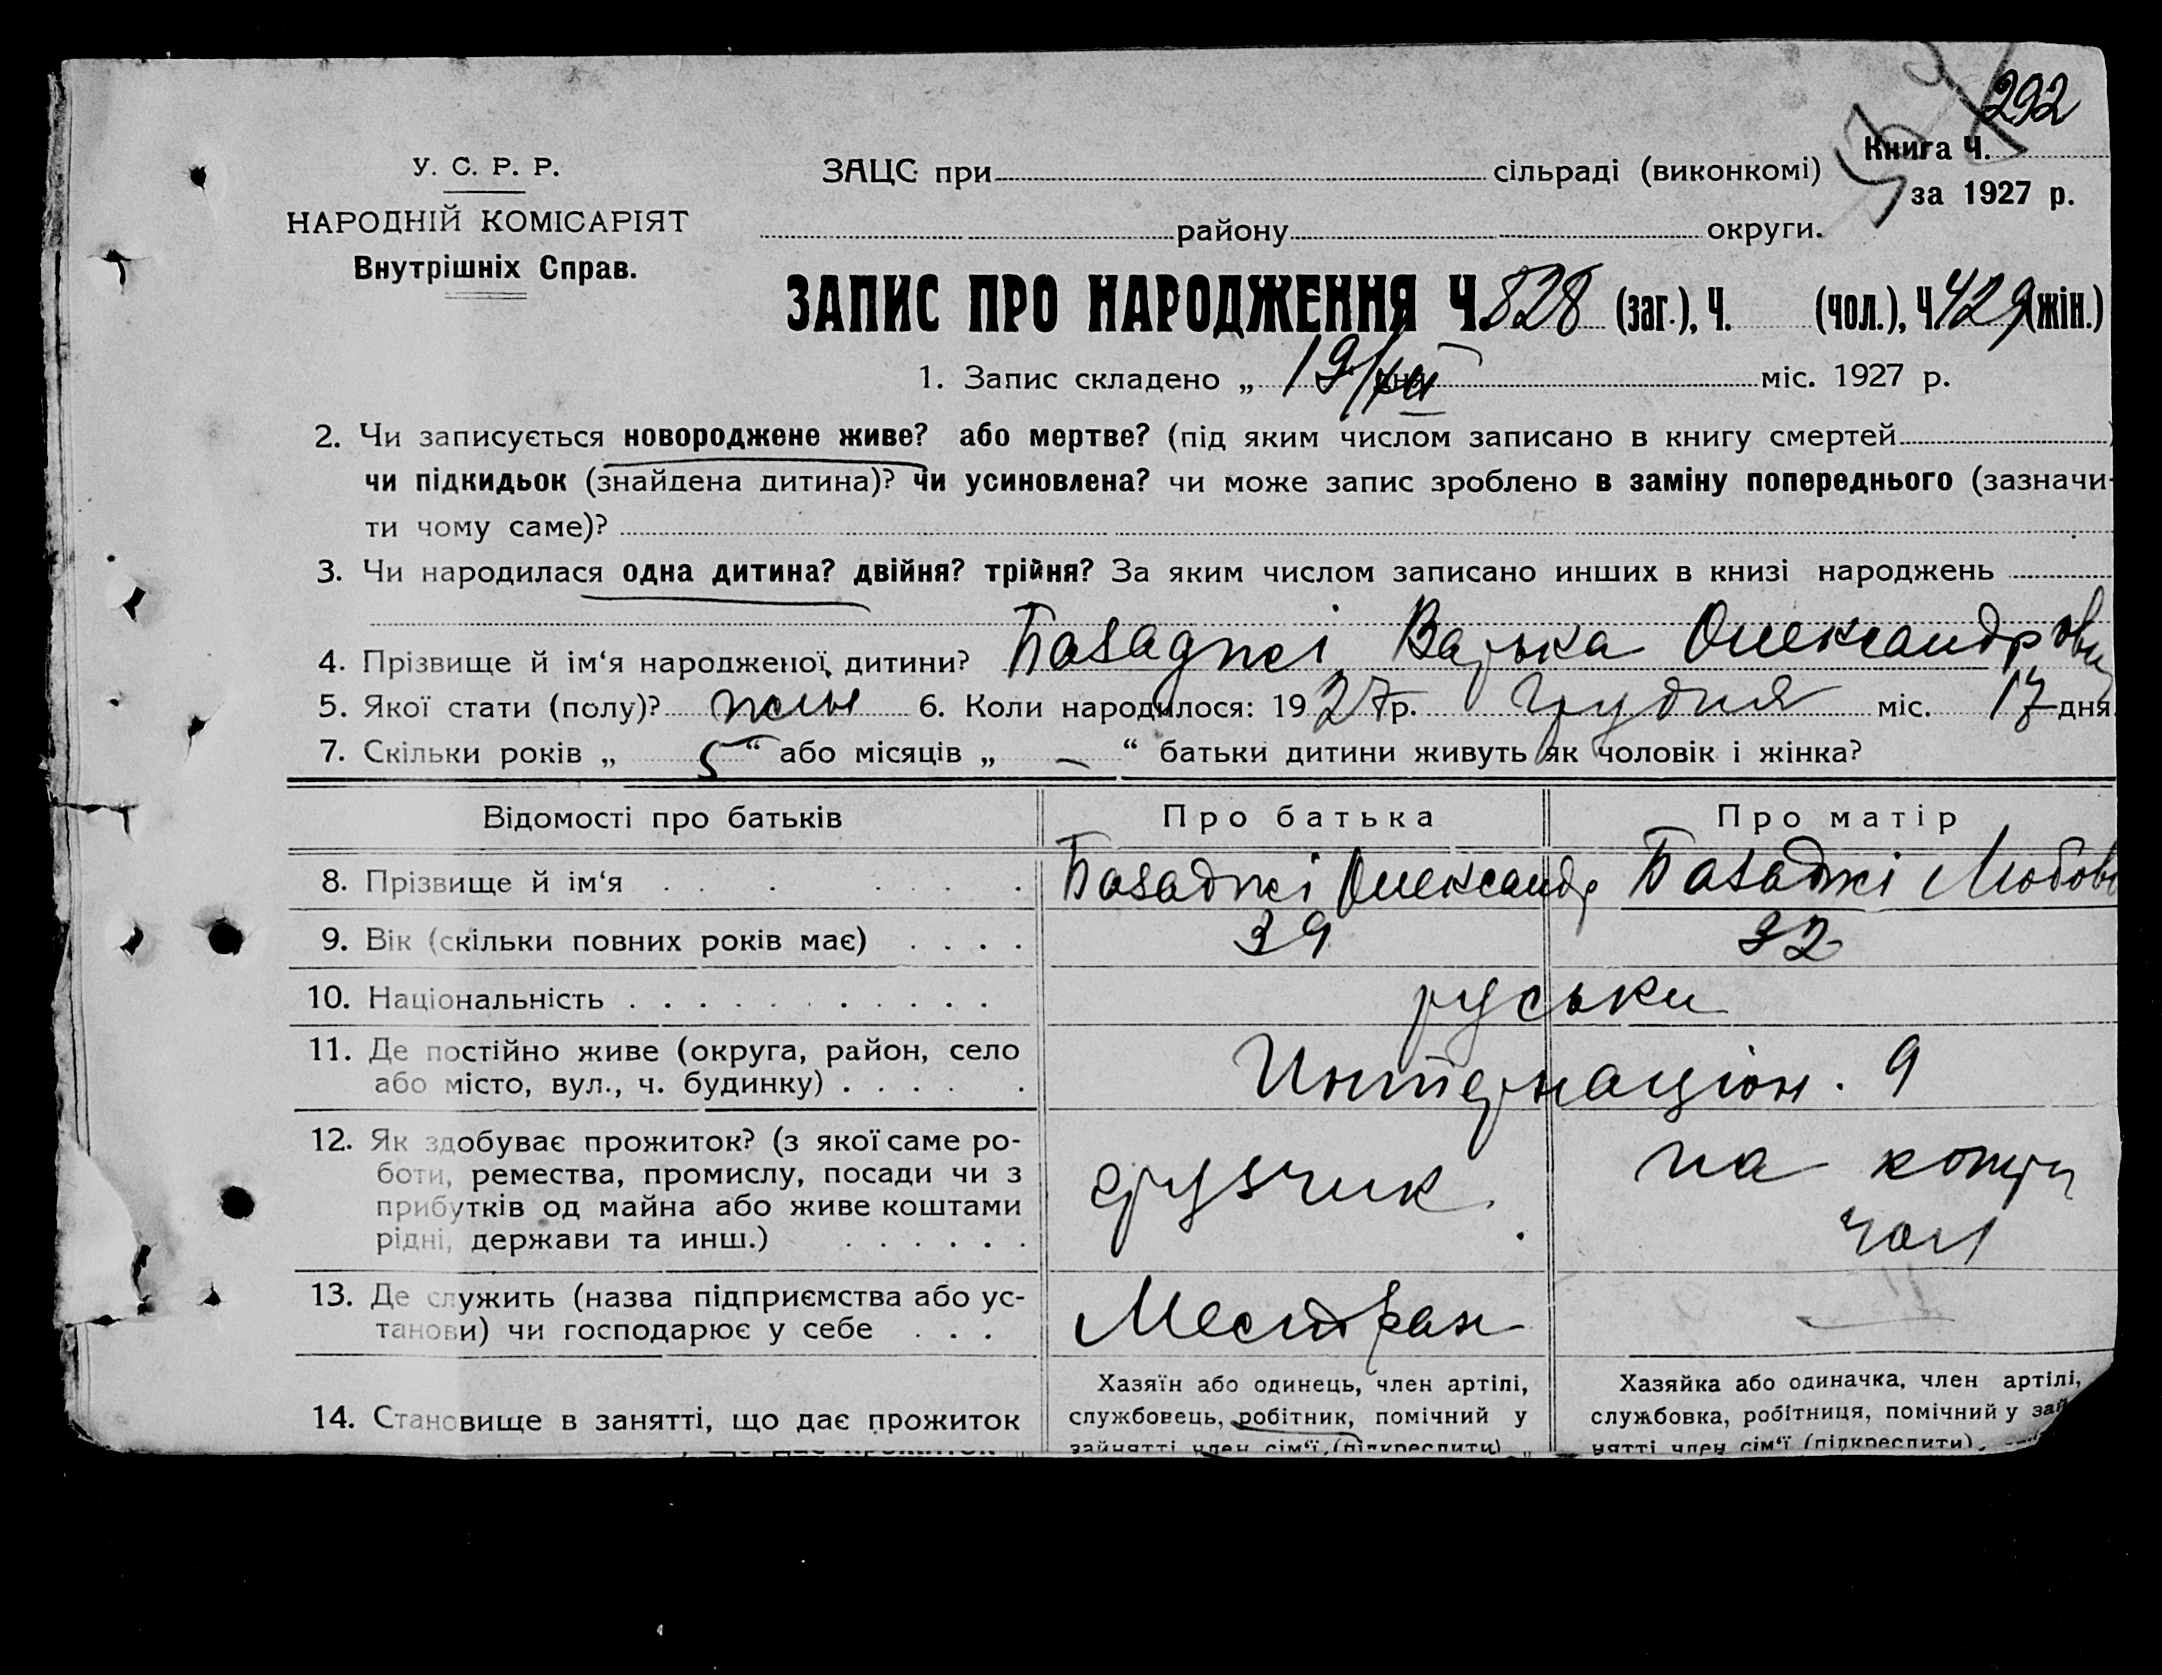 292
У. С. Р. Р.
НАРОДНІЙ КОМІСАРІЯТ
Внутрішніх Справ.
ЗАЦС при сільраді (виконкомі)
району округи.
Книга Ч.
за 1927 р.
ЗАПИС ПРО НАРОДЖЕННЯ Ч. 828 (заг.), Ч. (чол.), Ч. 429 (жін.)
1. Запис складено „ 19/XII дня міс. 1927 р.
2. Чи записується новороджене живе? або мертве? (під яким числом записано в книгу смертей
чи підкидьок (знайдена дитина)? чи усиновлена? чи може запис зроблено в заміну попереднього (зазначи-
ти чому саме)?
3. Чи народилася одна дитина? двійня? трійня? За яким числом записано инших в книзі народжень
4. Прізвище й ім‘я народженої дитини? Базаджі Варька Олександровн
5. Якої стати (полу)? жін 6. Коли народилося: 1927 р. Грудня міс. 17 дня
7. Скільки років „ 5 “ або місяців „ — “ батьки дитини живуть як чоловік і жінка?
Відомості про батьків Про батька Про матір
8. Прізвище й ім‘я . . . . . . . Базаджі Олександр Базаджі Любовь
9. Вік (скільки повних років має) . . . . 39 32
10. Національність . . . . . . . . . . . руськи
11. Де постійно живе (округа, район, село
або місто, вул., ч. будинку) . . . . . Интернаціон. 9
12. Як здобуває прожиток? (з якої саме ро-
боти, ремества, промислу, посади чи з
прибутків од майна або живе коштами
рідні, держави та инш.) . . . . . .
грузчик.
на кошти
чол
13. Де служить (назва підприємства або ус-
танови) чи господарює у себе . . . Местран —
14. Становище в занятті, що дає прожиток
Хазяїн або одинець, член артілі,
службовець, робітник, помічний у
зайнятті член сім‘ї, (підкреслити)
Хазяйка або одиначка, член артілі,
службовка, робітниця, помічний у зай-
нятті член сім‘ї (підкреслити).